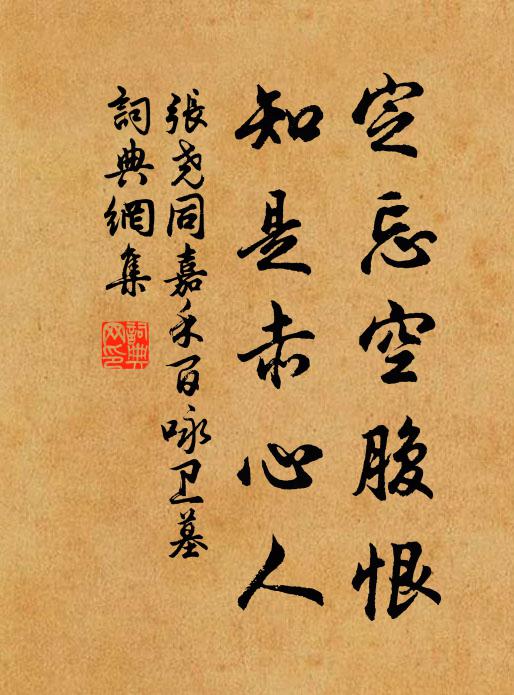 定忘空腹恨
知是赤心人
張尧同嘉禾百咏卫墓
詞典網集
詞典网印